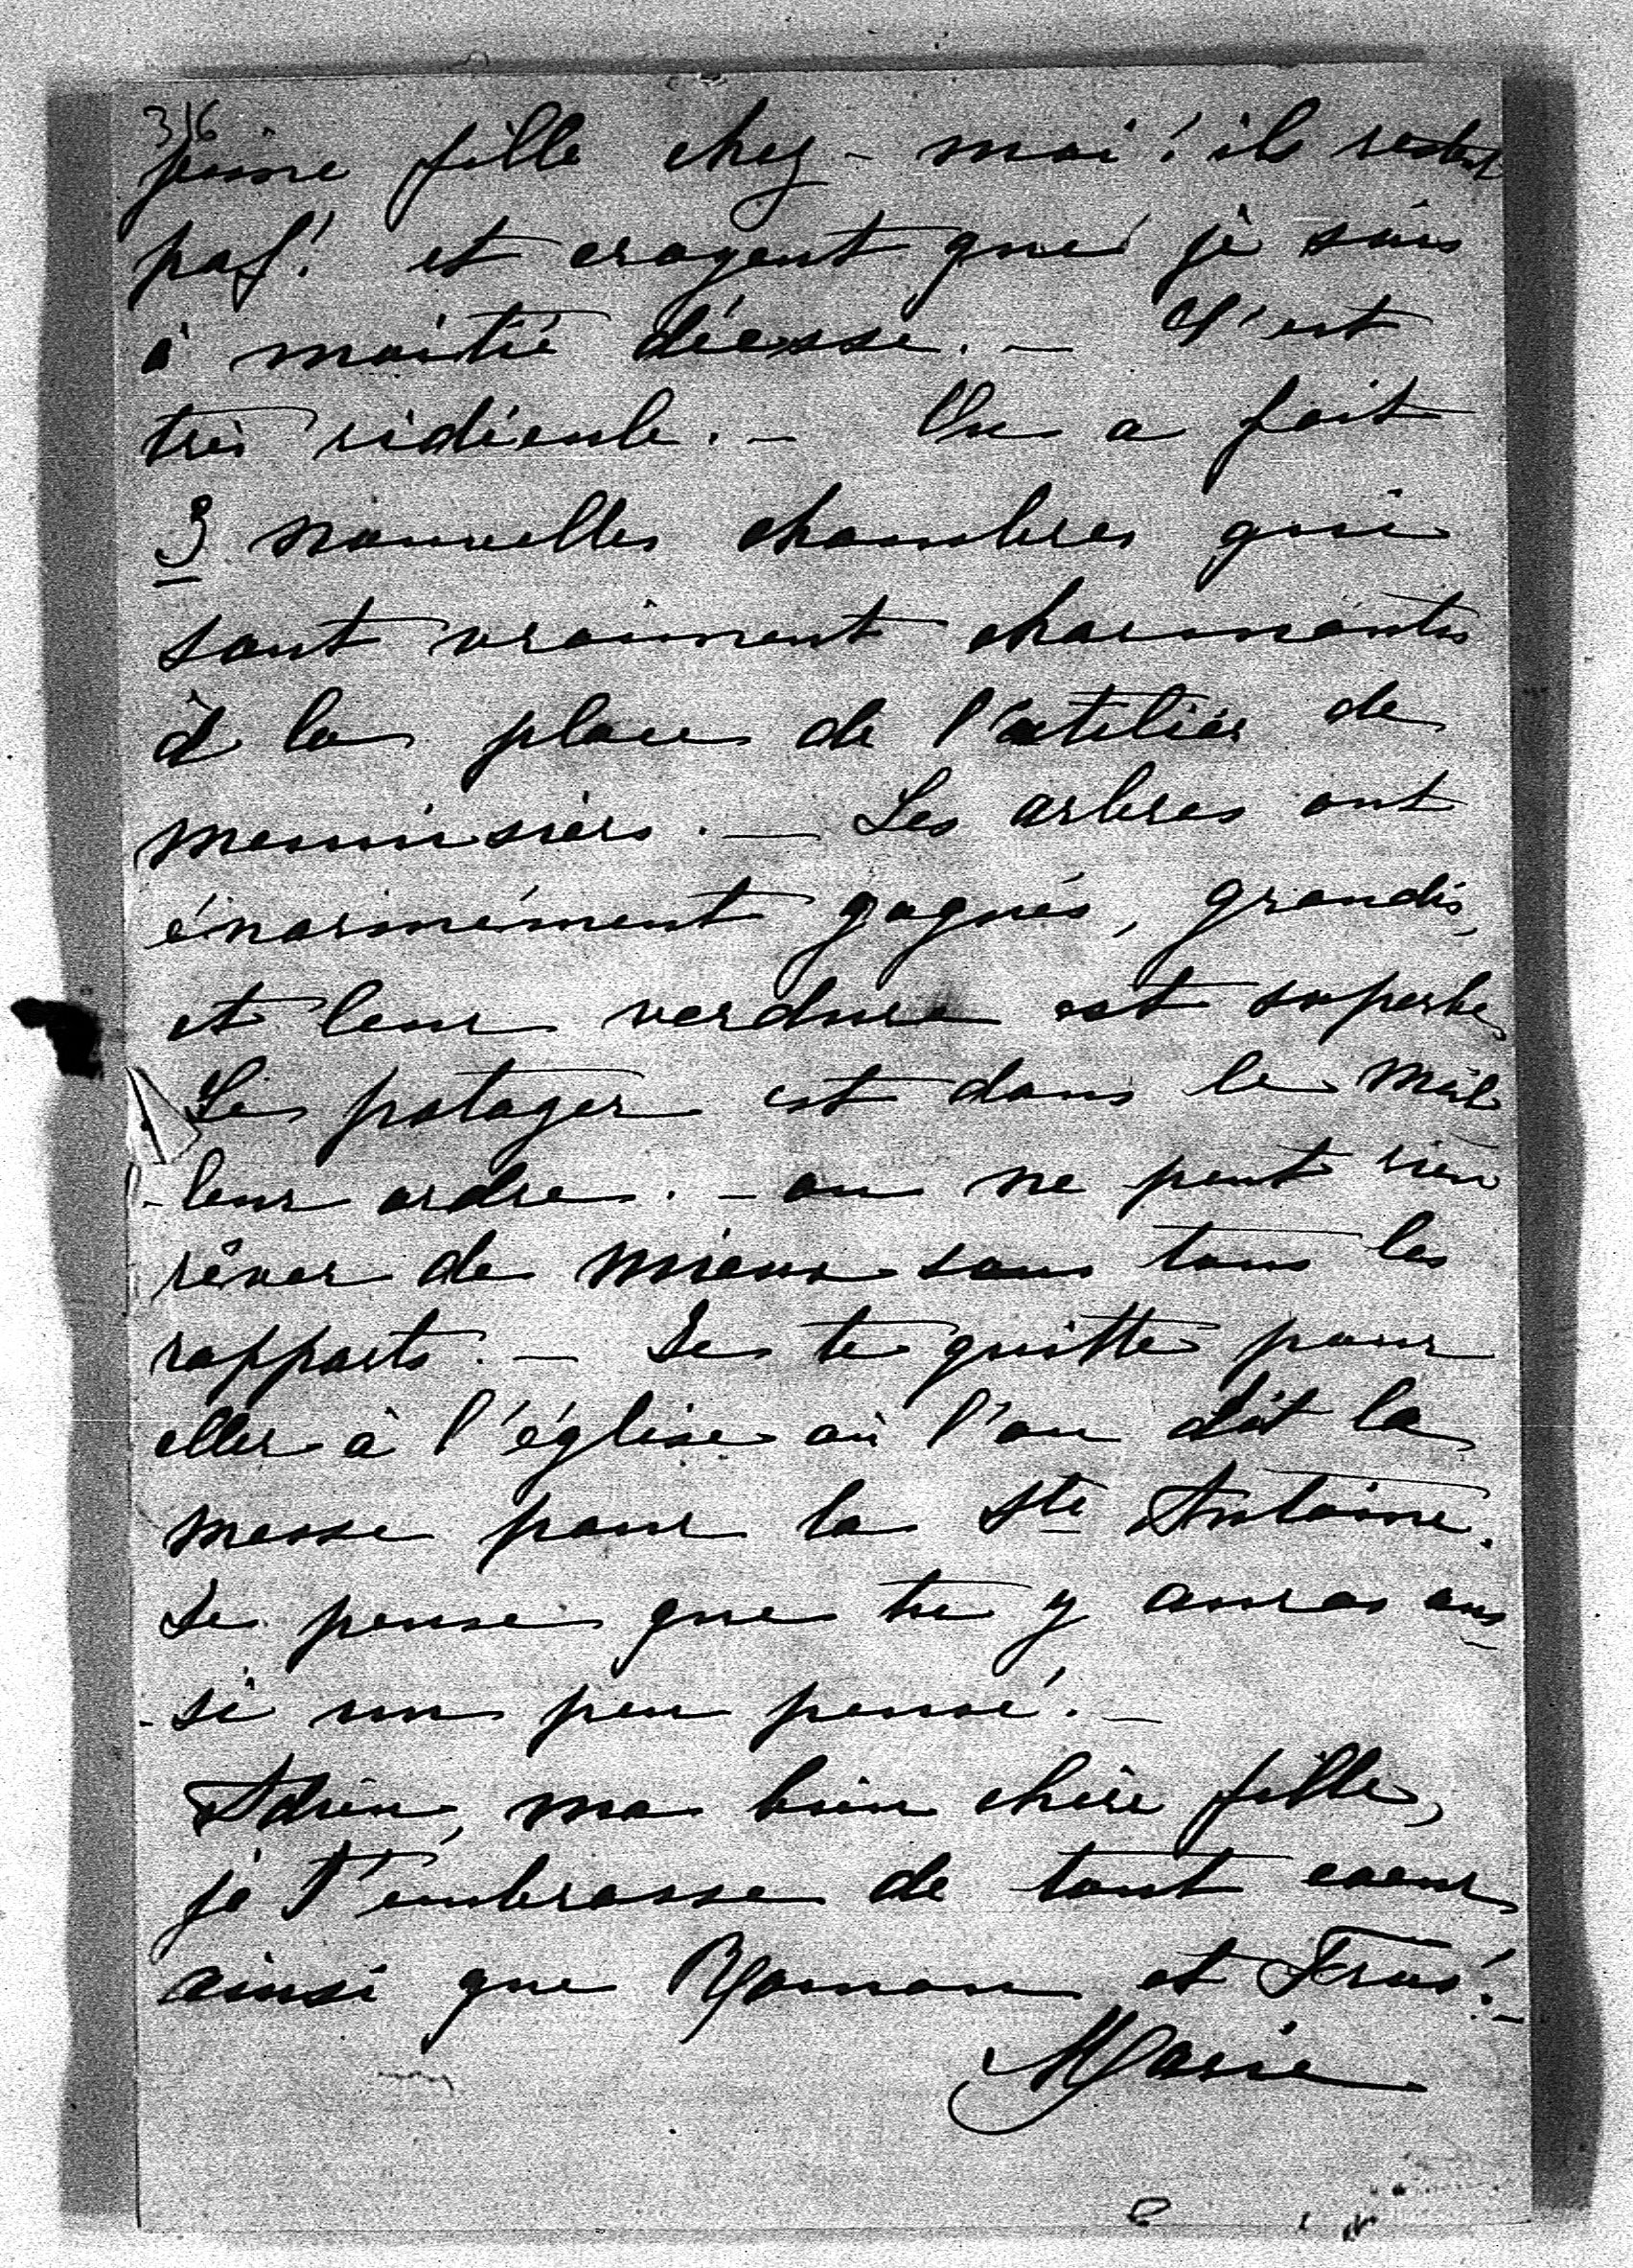 316
jeune fille chez-moi! ils restent
paf! et croyent que je suis
à moitié déesse. – C'est
très ridicule. – On a fait
3 nouvelles chambres qui
sont vraiment charmantes
à la place de l'atelier de
menuisiers. — Les arbres ont
énormément gagnés, grandis,
et leur verdure est superbe,
Le potager est dans le meil
-leur ordre. – on ne peut rien
rêver de mieux sous tous les
rapports. – Je te quitte pour
aller à l'église où l'on dit la
messe pour la Ste Antoine.
Je pense que tu y auras aus
-si un peu pensé. –
Adieu, ma bien chère fille,
je t'embrasse de tout coeur
ainsi que Maman et
Marie